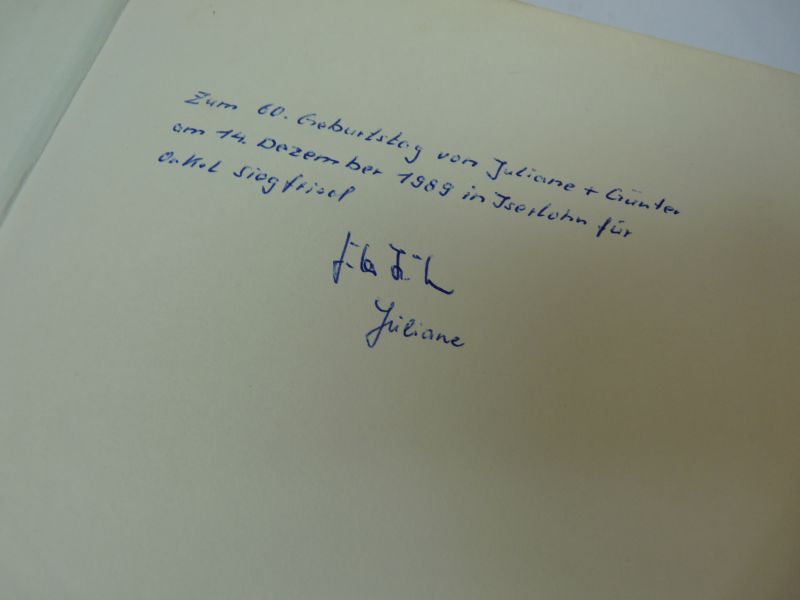 Zum 60. Geburtstag von Juliane + Günter
am 14. Dezember 1989 in Iserlohn für
Onkel Siegfried
Juliane